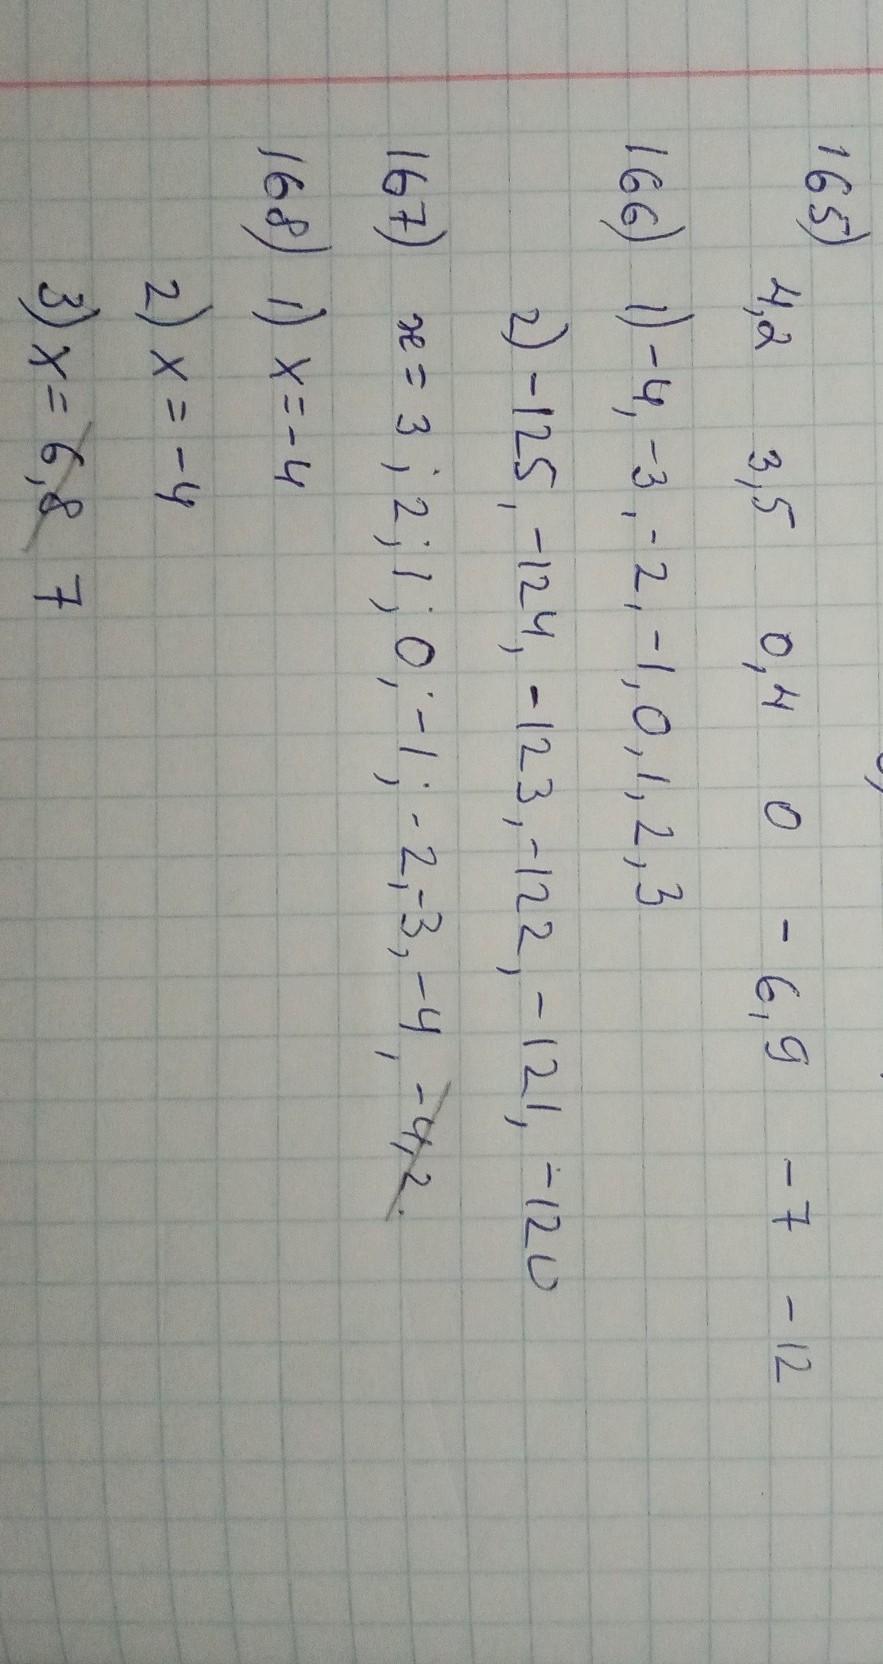 165)
4,2 3,5 0,4 0 -6,9 -7 -12
166) 1) -4, -3, -2, -1, 0, 1, 2, 3
2) -125, -124, -123, -122, -121, -120
167) x = 3; 2; 1; 0; -1; -2, -3, -4, -4,2.
168) 1) x = -4
2) x = -4
3) x = 6,8 7